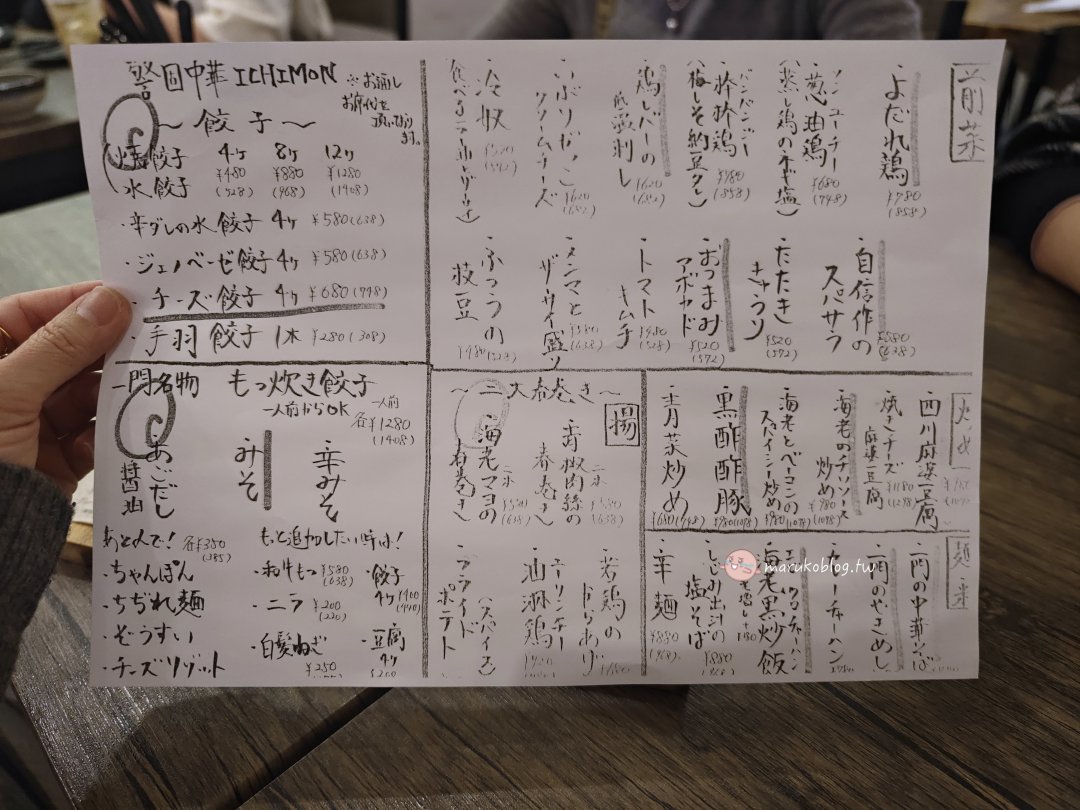 中華ICHIMON
※お通し
お席代を
頂いており
ます。
～餃子～
4ケ 8ケ 12ケ
餃子 ¥480 ¥880 ¥1280
水餃子 (528) (968) (1408)
・辛ダレの水餃子 4ケ ¥580(638)
・ジェノベーゼ餃子 4ケ ¥580(638)
・チーズ餃子 4ケ ¥680(748)
・手羽餃子 1本 ¥280(308)
一門名物 もつ炊き餃子
一人前からOK
一人前
各¥1280
(1408)
あごだし
醤油
みそ
辛みそ
あと入れで! 各¥350
(385)
・ちゃんぽん
・ちぢれ麺
・ぞうすい
・チーズリゾット
もっと追加したい時は!
・和牛もつ ¥580
(638)
・ニラ ¥200
(220)
・白髪ねぎ
¥250
・餃子
4ケ ¥400
(440)
・豆腐
4ケ
¥200
前菜
・よだれ鶏 ¥780
(858)
ソンユーチー
・葱油鶏 ¥680
(748)
(蒸し鶏のネギ塩)
バンバンジー
・棒棒鶏 ¥780
(858)
(梅しそ納豆タレ)
・鶏レバーの
低温刺し ¥620
(682)
・いぶりがっこ
クリームチーズ ¥620
(682)
・冷奴 ¥520
(572)
・自信作の
スパサラ ¥580
(638)
・たたき
きゅうり ¥520
(572)
・おつまみ
アボカド ¥520
(572)
・トマト
キムチ ¥480
(528)
・メンマと
ザーサイ盛り ¥580
(638)
・ふつうの
枝豆 ¥480(528)
・四川麻婆豆腐
・焼きチーズ
麻婆豆腐 ¥1180
(1298)
・海老のチリソース
炒め ¥980
(1078)
・海老とベーコンの
スパイシー炒め ¥980(1078)
・黒酢酢豚 ¥980(1078)
・青菜炒め ¥680(748)
～大春巻き～
揚
・青椒肉絲の
春巻き 二本
¥580
(638)
・海老マヨの
春巻き 二本
¥580
(638)
・若鶏の
からあげ
ユーリンチー
・油淋鶏
・フライド
ポテト
(スパイス)
・一門の中華そば
・一門のやきめし
・カレーチャーハン
・海老黒炒飯
・しじみ出汁の
塩そば ¥880
(968)
・辛麺 ¥880
(968)
marukoblog.tw